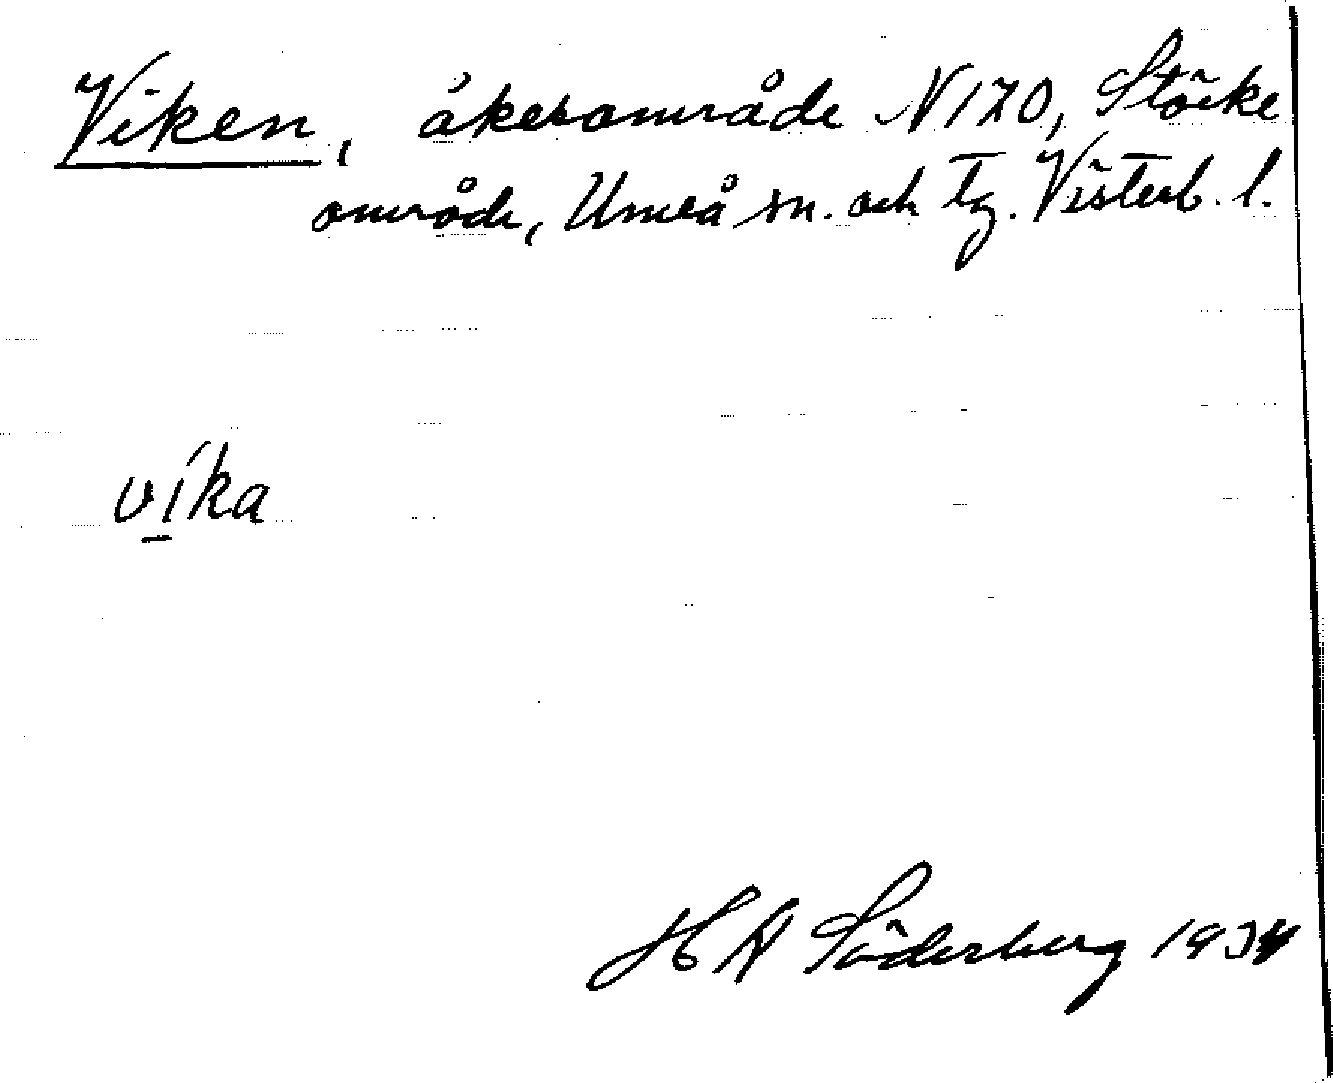 Viken, åkerområde N120, Stöcke
område, Umeå sn. och tg. Västerb. l.
víka
H A Söderberg 1934